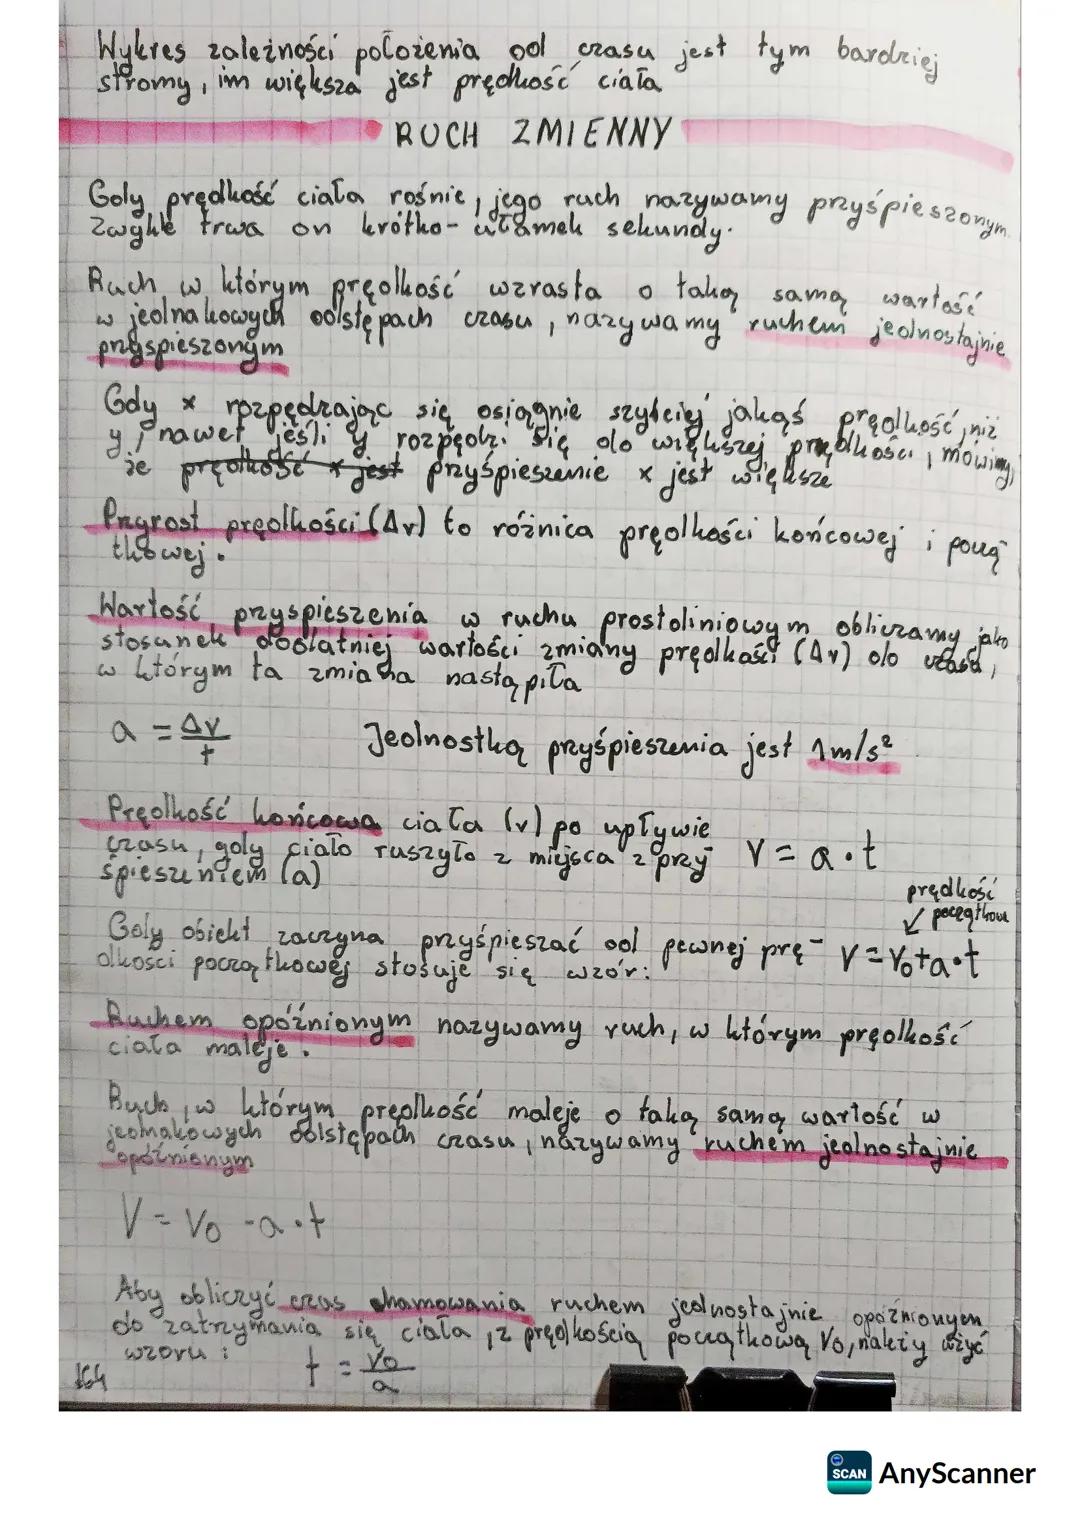 Wykres zależności położenia od czasu jest tym bardziej
stromy, im większa jest prędkość ciała
RUCH ZMIENNY
Gdy prędkość ciała rośnie, jego ruch nazywamy przyśpieszonym.
Zwykle trwa on krótko- ułamek sekundy.
Ruch w którym prędkość wzrasta o taką samą wartość
w jednakowych odstępach czasu, nazywamy ruchem jednostajnie
przyspieszonym
Gdy x rozpędzając się osiągnie szybciej jakąś prędkość, niż
y, nawet jeśli y rozpędzi się do większej prędkości, mówimy,
że prędkość x jest przyśpieszenie x jest większe
Przyrost prędkości (Δv) to różnica prędkości końcowej i począ-
tkowej.
Wartość przyspieszenia w ruchu prostoliniowym obliczamy jako
stosunek dodatniej wartości zmiany prędkości (Δv) do czasu,
w którym ta zmiana nastąpiła
a = Δv/t Jednostką przyśpieszenia jest 1m/s²
Prędkość końcowa ciała (v) po upływie
czasu, gdy ciało ruszyło z miejsca z przy-
śpieszeniem (a)
V = a · t
prędkość
początkowa
Gdy obiekt zaczyna przyśpieszać od pewnej prę-
dkości początkowej stosuje się wzór:
V = V₀+a·t
Ruchem opóźnionym nazywamy ruch, w którym prędkość
ciała maleje.
Ruch, w którym prędkość maleje o taką samą wartość w
jednakowych odstępach czasu, nazywamy ruchem jednostajnie
opóźnionym
V = V₀ -a·t
Aby obliczyć czas hamowania ruchem jednostajnie opóźnionym
do zatrzymania się ciała, z prędkością początkową V₀, należy użyć
wzoru: t = V₀/a
164
SCAN AnyScanner